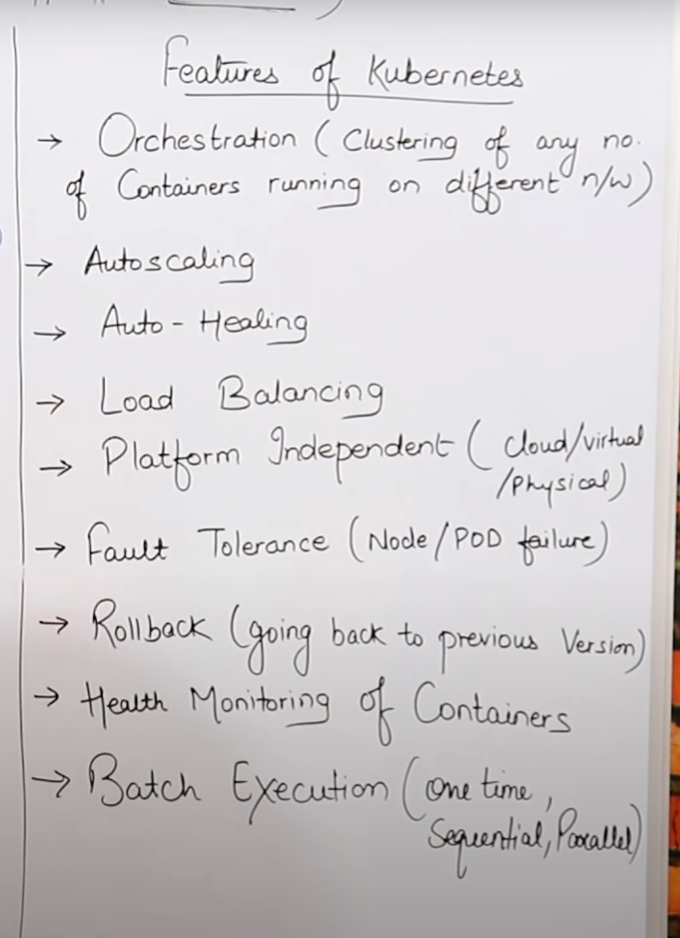 Features of Kubernetes
→ Orchestration (Clustering of any no.
of Containers running on different n/w)
→ Autoscaling
→ Auto-Healing
→ Load Balancing
→ Platform Independent (Cloud/virtual
/Physical)
→ Fault Tolerance (Node/POD failure)
→ Rollback (going back to previous Version)
→ Health Monitoring of Containers
→ Batch Execution (One time,
Sequential, Parallel)